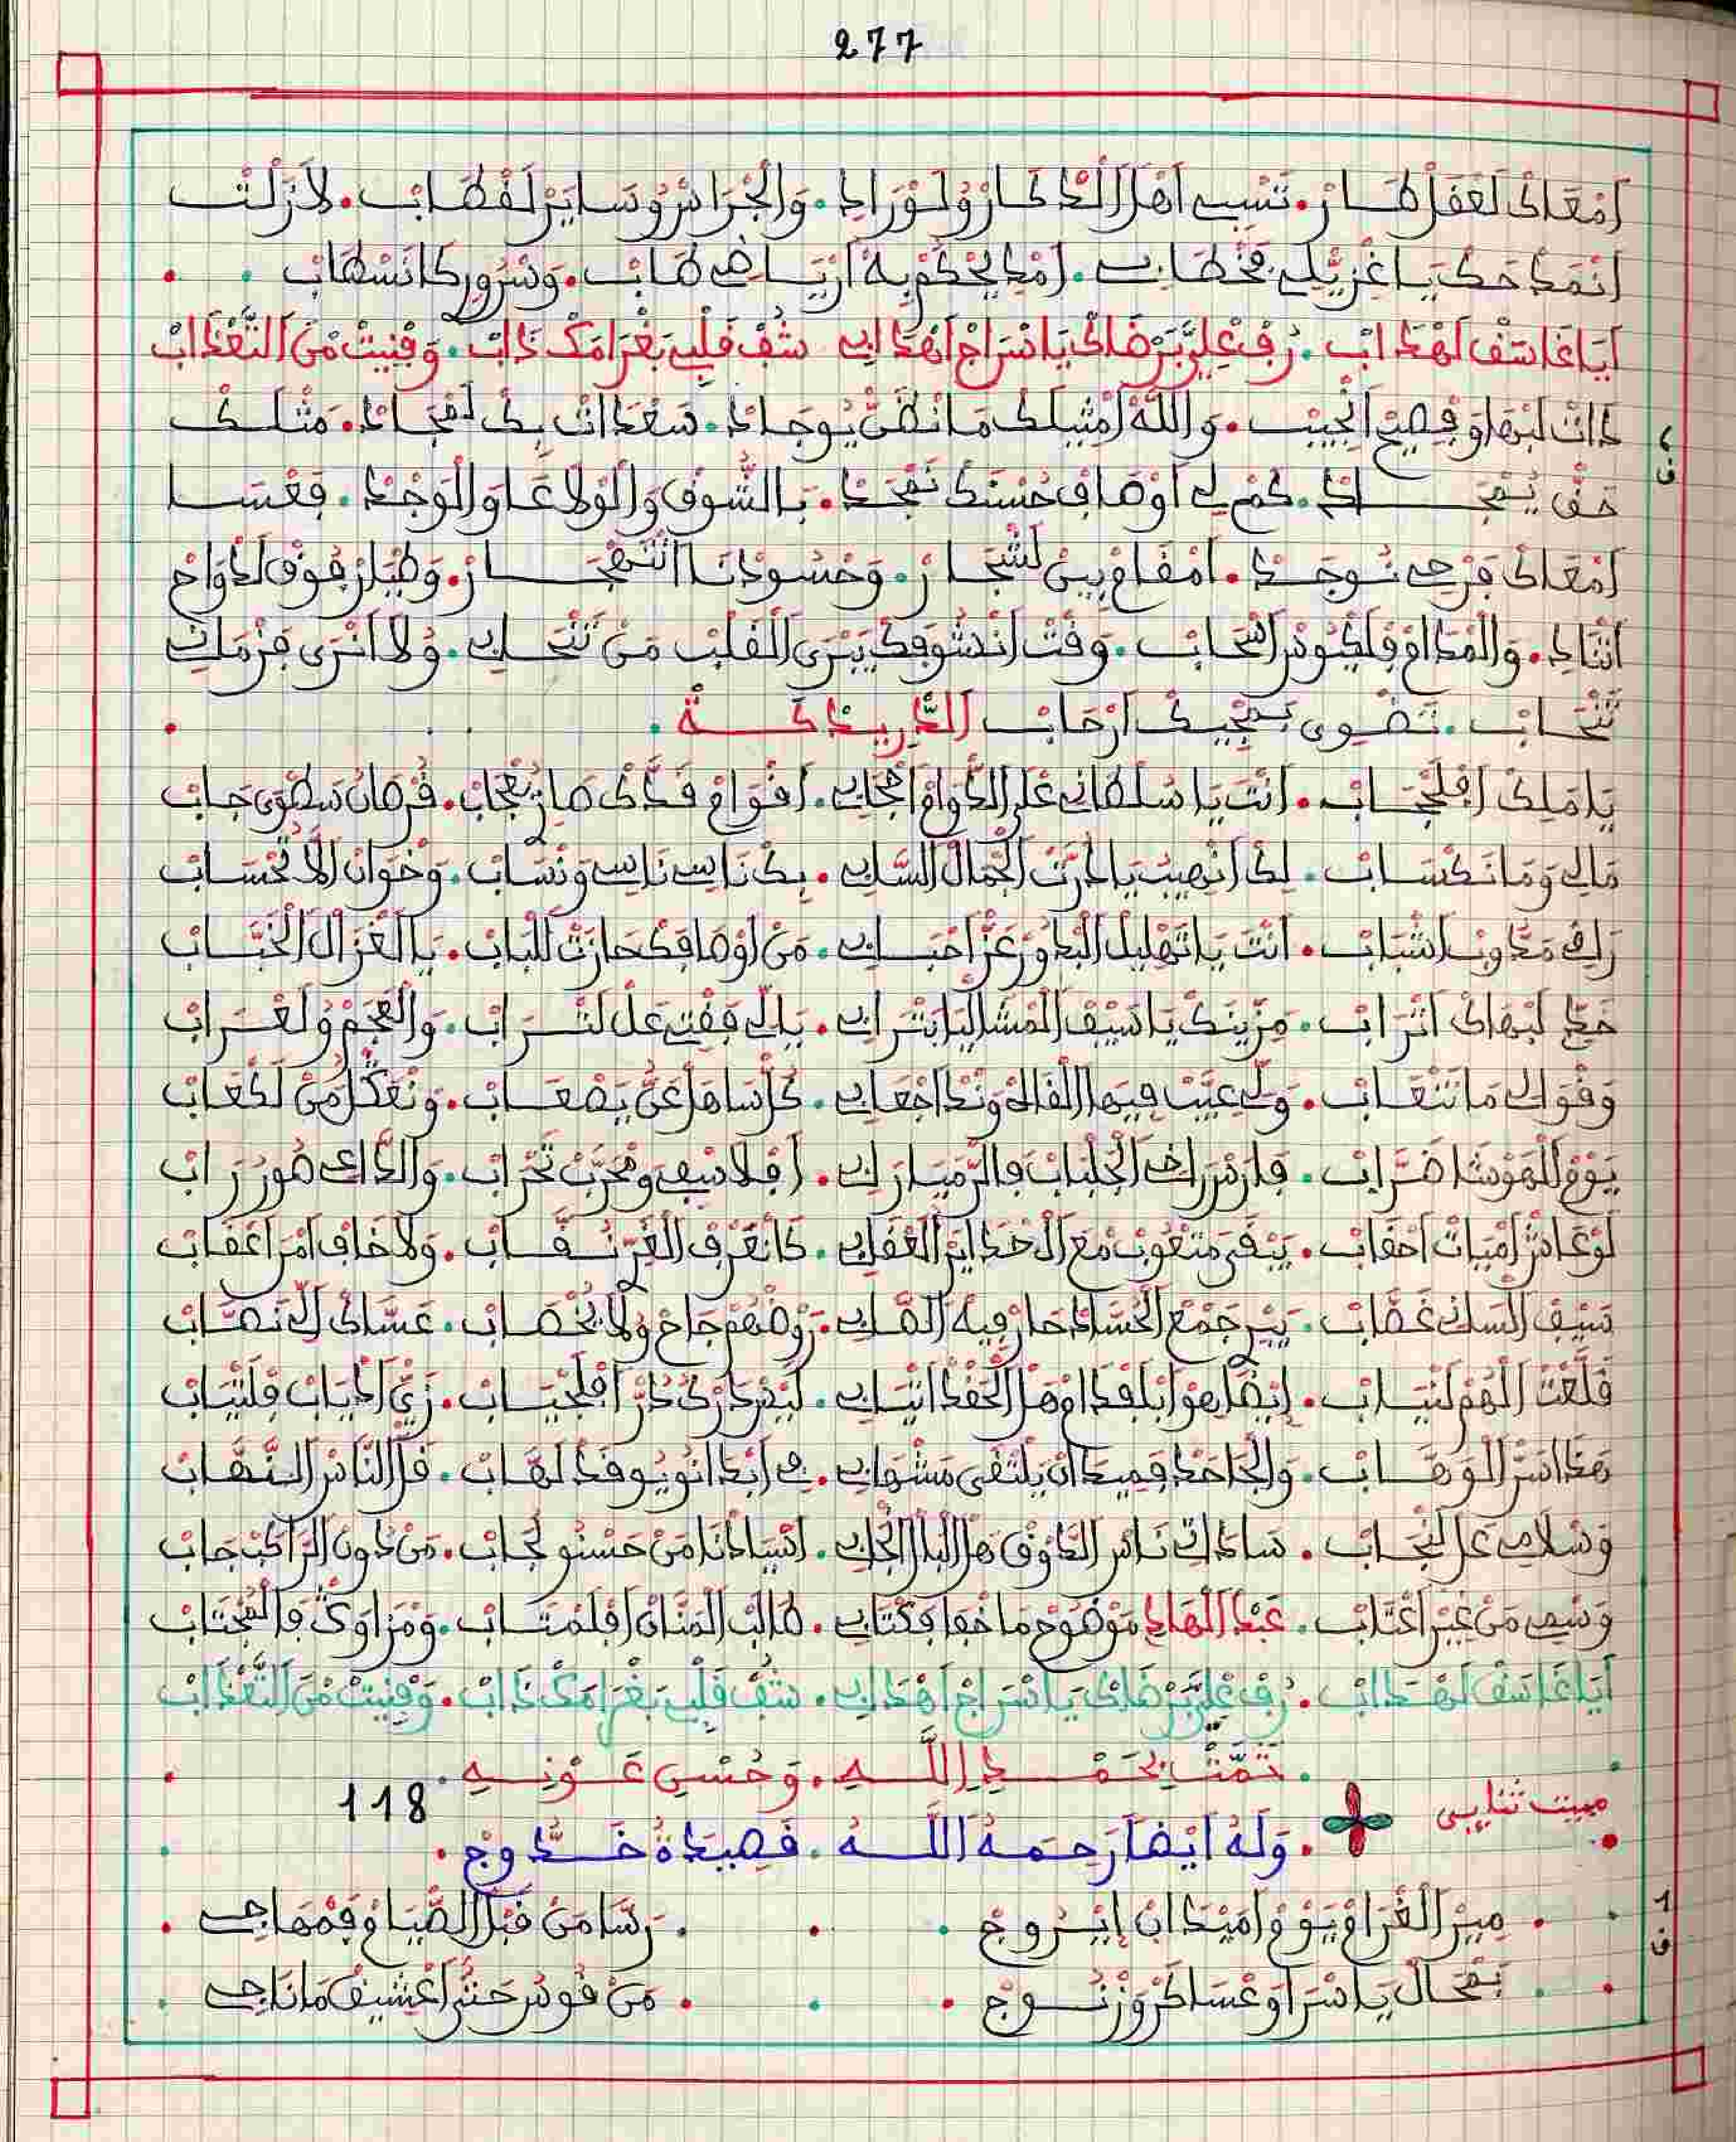 277
أمعاك لعقل طار. تسبي أهل الذكار ولوراد. والجراس وساير لقطاب. لازلت
أنمدحك يا غزيلي فخطابي. أمد يحكم به أرياضي طاب. وسرور كانسطاب
أيا عاشق لهداب. رف علي برضاك يا سراج أهدابي شف قلبي بغرامك ذاب. وفنيت من التعذاب
ذات لبها وفصيح الجيب. والله أمثيلك مانظن يوجاد. سعدات بك لمجاد. مثلك
حق يمجاد. كم لي أوصاف حسنك نمجد. بالشوق والولاعا والوجد. فعسا
أمعاك فرحي نوجد. أمقام بين لشجار. وحسودنا انهجار. وطيار فوق لدواح
انثاد. والمدام فلكيوس انتحاب. وقت أنشوفك يبرى القلب من تنحابي. ولا أنرى فزماني
تنحاب. تضوى بمجيك أرحاب الدريدكة
يا ملك أفلحجاب. أنت يا سلطاني على الدوام أمجابي. أقوام قدك صار يعجاب. فرصان سطوى جاب
مالي وما نكساب. لك أنهيب يا درت الجمال السابي. بك ناسي ناسي ونساب. وخوان الا تحساب
راني مدوب اشباب. أنت يا تهليل البدور عز أحبابي. من أوصافك حارت للباب. يا الغزال الخباب
خد لبهاك اتراب. مزينك يا سيف المشاليا بترابي. يالي فقت على لتراب. والعجم ولعراب
وقوالي ما تتعاب. ولي عيب فيها القاك وندا جعابي. كل ساهل عن يصعاب. ونعكل من لكعاب
يوم الهوشا ضراب. فارس راخف الجلباب فالرميا رابي. أفلا سيفي ومجرب تحراب. والداعي صور راب
لوعاش أميات أحقاب. يبقى متعوب مع الخداير العقابي. كانعرف الغر نقاب. ولا خاف أمن اعقاب
سيف لساني غضاب. بير جمع الحساد حار فيه الصابي. روضهم جاح ولا يخصاب. عساك الي نصاب
قلعت الهم لنياب. إيضا هو ابلقدام هل الحقد انيابي. ليس دارك در أفلجياب. زي الذياب فلثياب
هذا سر الوهاب. والجاحد فميدان يلتقى مشهابي. في أبدانو يوقد لهاب. قل الناس النهاب
وسلامي عل النجاب. سادات ناس الذوق هل البال النجابي. اسيادنا من حسنو لجاب. من دون الراكب جاب
وسمي من غير أعتاب. عبد الهادي موضوح ما خفا فكتابي. طالب المنان أفلمتاب. ومزاوك فالمجتاب
أيا عاشق لهداب. رف علي برضاك يا سراج أهدابي. شف قلبي بغرامك ذاب. وفنيت من التعذاب
تمت بحمد الله. وحسن عونه
118
مبيت ثنائي
وله أيضا رحمه الله. قصيدة خدوج
1
ف
ميز الغرام يوم أميدان إيروج. رسا من قبل الصيام فمهاجي
بمحال ياسرا وعساكر وزنوج. من قوس حنش اعشيق ماناجي